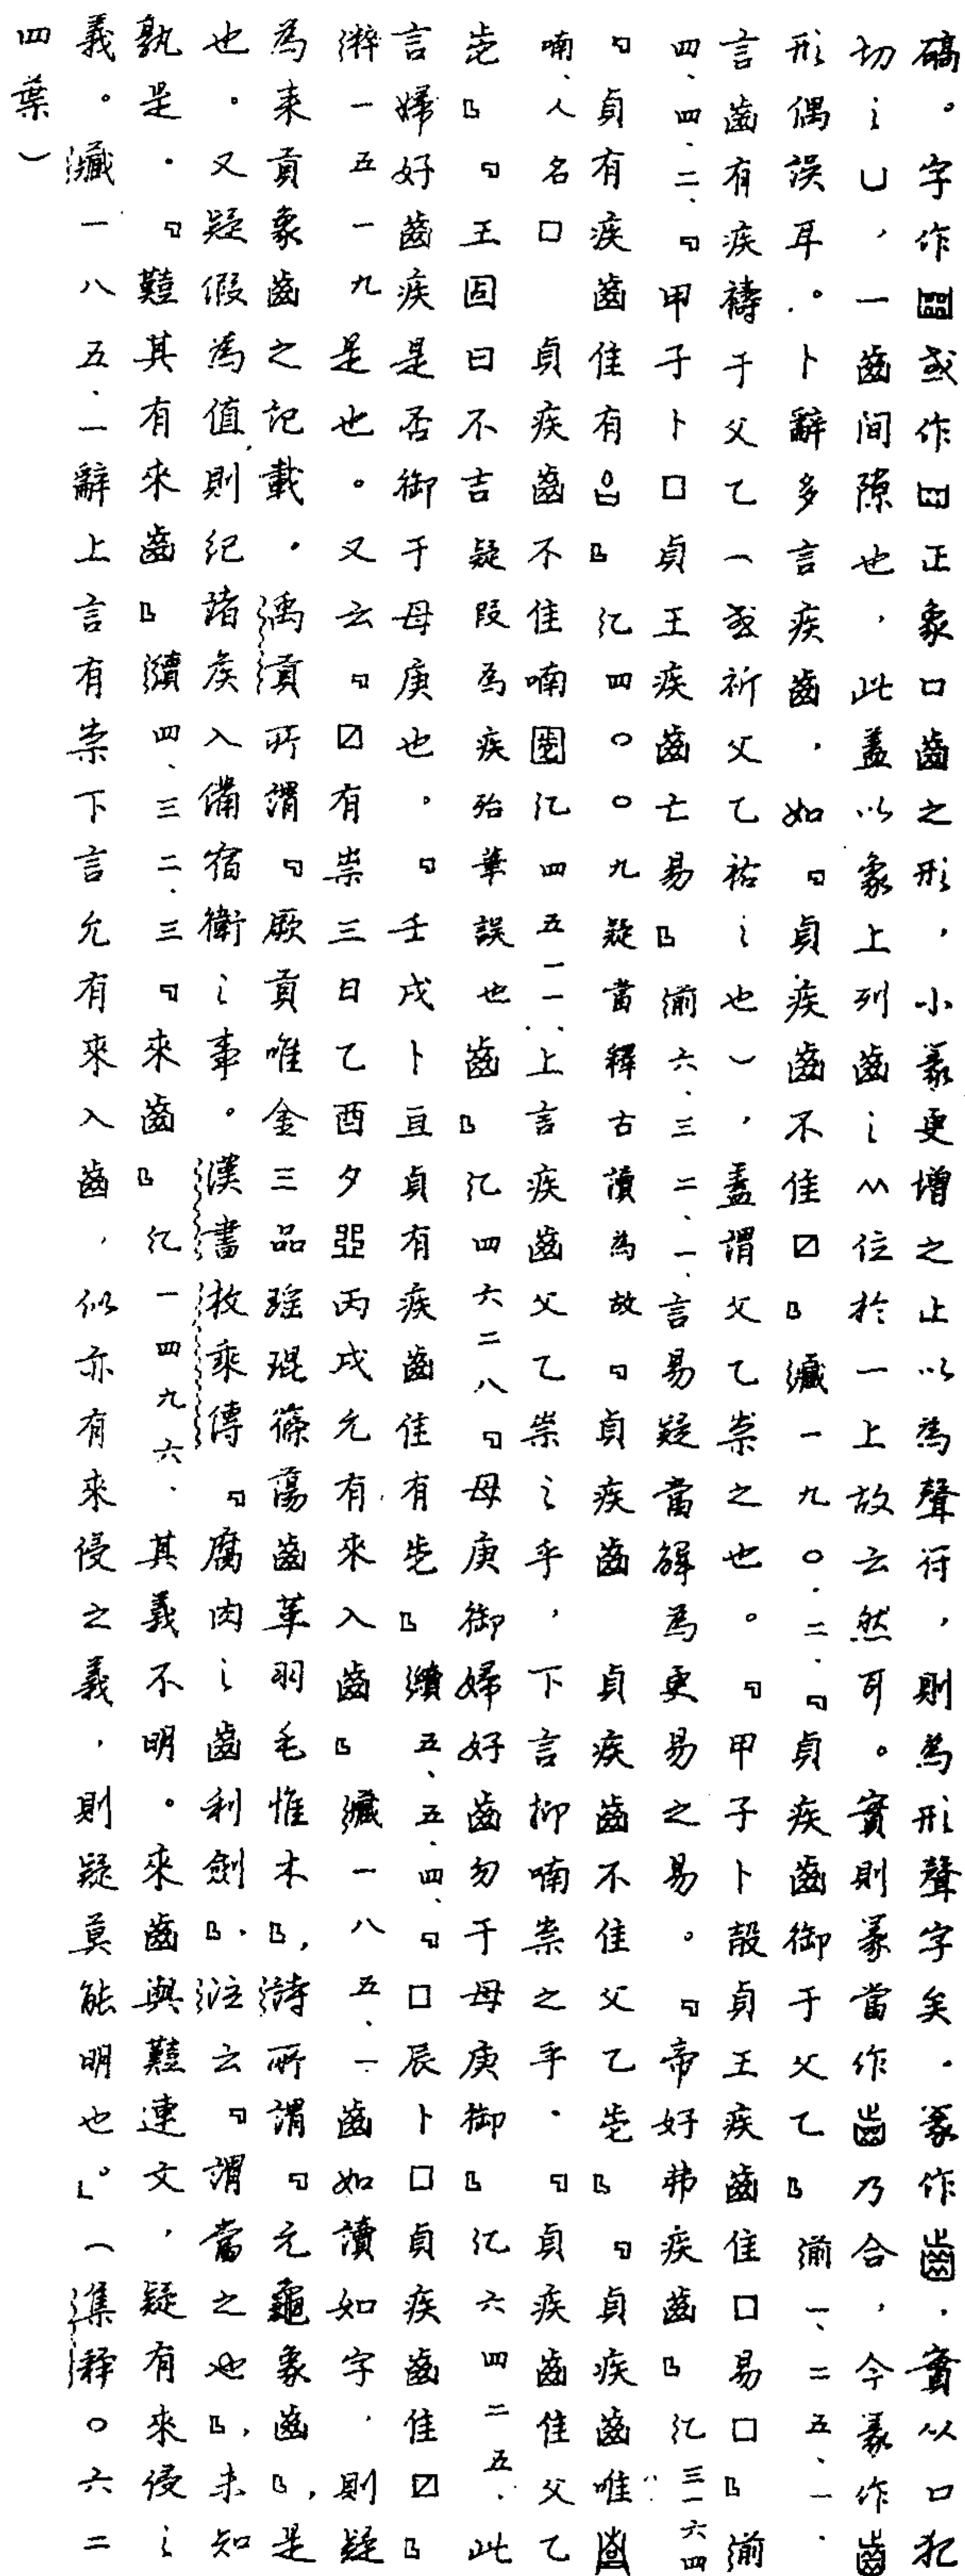 碻。字作或作正象口齒之形，小篆更增之止以為聲符，則為形聲字矣。篆作，實从口犯
切之凵，一齒間隙也，此蓋以象上列齒之位於一上故云然耳。實則篆當作乃合，今篆作
形偶誤耳。卜辭多言疾齒，如『貞疾齒不隹☐』藏一九〇．二．『貞疾齒御于父乙』湔一、二五、一．
言齒有疾禱于父乙（或祈父乙祐之也），蓋謂父乙祟之也。『甲子卜㱿貞王疾齒隹□易□』湔
四、四、二、『甲子卜□貞王疾齒亡易』湔六、三二、一、言易疑當解為更易之易。『帝好弗疾齒』乙三一六四
『貞有疾齒隹有』乙四〇〇九疑當釋古讀為故『貞疾齒 貞疾齒不隹父乙』『貞疾齒唯
喃、人名□ 貞疾齒不隹喃乙四五一一．上言疾齒父乙祟之乎，下言抑喃祟之乎．『貞疾齒隹父乙
』『王固曰不吉疑段為疾殆筆誤也齒』乙四六二八『母庚御婦好齒勿于母庚御』乙六四二五．此
言婦好齒疾是否御于母庚也。『壬戌卜亘貞有疾齒隹有』續五、五、四、『□辰卜□貞疾齒隹☐』
一五一九是也。又云『☐有祟三日乙酉夕丙戌允有來入齒』藏一八五．一齒如讀如字，則疑
為來貢象齒之記載．禹貢所謂『厥貢唯金三品瑤琨篠蕩齒革羽毛惟木』，詩所謂『元龜象齒』，是
也。又疑假為值，則紀諸侯入備宿衛之事。漢書枚乘傳『腐肉之齒利劍』．注云『謂當之也』，未知
孰是．『囏其有來齒』續四、三二．三『來齒』乙一四九六．其義不明。來齒與囏連文，疑有來侵之
義。藏一八五．一辭上言有祟下言允有來入齒，似亦有來侵之義，則疑莫能明也」。（集釋〇六二
四葉）